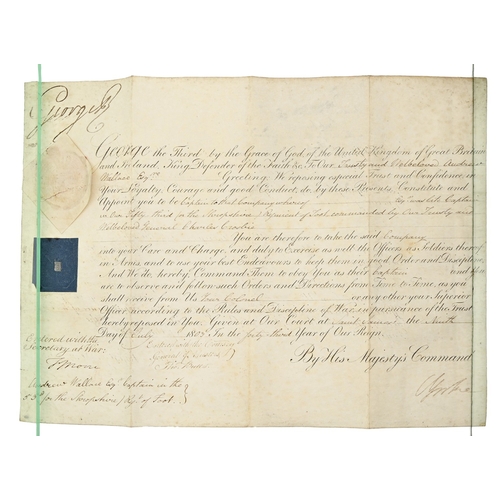 George R
George the Third by the Grace of God, of the United Kingdom of Great Britain
and Ireland, King, Defender of the Faith &c To Our Trusty and Welbeloved Andrew
Wallace Esqr. Greeting. We reposing especial Trust and Confidence in
Your Loyalty, Courage and good Conduct, do, by these Presents, Constitute and
Appoint you to be Captain of that Company whereof Esq. late Captain
in Our Fifty Third (or the Shropshire) Regiment of Foot commanded by Our Trusty and
Welbeloved General Charles Crosbie
You are therefore to take the said Company
into your Care and Charge, and duly to Exercise as well the Officers as Soldiers thereof
in Arms, and to use your best Endeavours to keep them in good Order and Discipline;
And We do, hereby, Command Them to Obey you as their Captain and you
are to observe and follow such Orders and Directions from Time to Time, as you
shall receive from Us, your Colonel or any other your Superior
Officer, according to the Rules and Discipline of War, in pursuance of the Trust
hereby reposed in You. Given at Our Court at Saint James's the Ninth
Day of July 1805 In the Forty Fifth Year of Our Reign.
By His Majesty's Command
Entered with the
Secretary at War:
F Moore
Andrew Wallace Esqr. Captain in the
53d. (or the Shropshire) Regt. of Foot